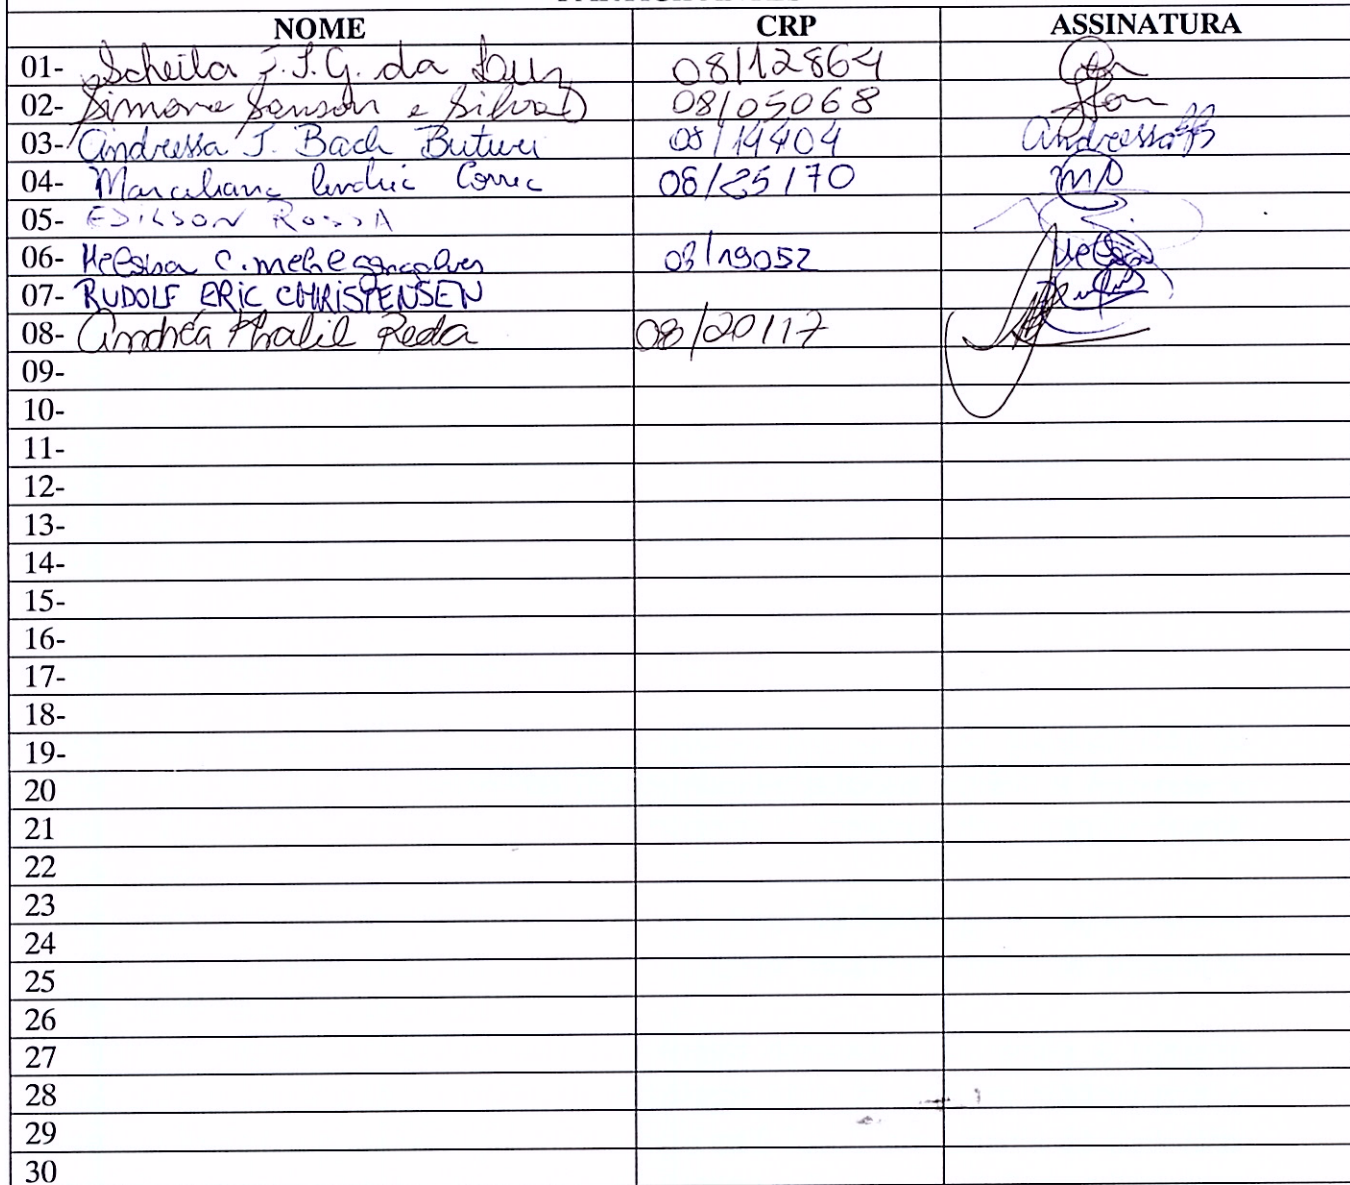 NOME CRP ASSINATURA
01- Scheila F.S.G. da Luz 08/12864
02- Simone Sanson e Silva 08/05068
03- Andressa J. Bach Buturi 08/14404 Andressa
04- Correa 08/25170
05- EDILSON ROSSA
06- Heloisa C. Mehl Gonçalves 08/19052 Heloisa
07- RUDOLF ERIC CHRISTENSEN
08- Andréa Khalil Reda 08/20117
09-
10-
11-
12-
13-
14-
15-
16-
17-
18-
19-
20
21
22
23
24
25
26
27
28
29
30